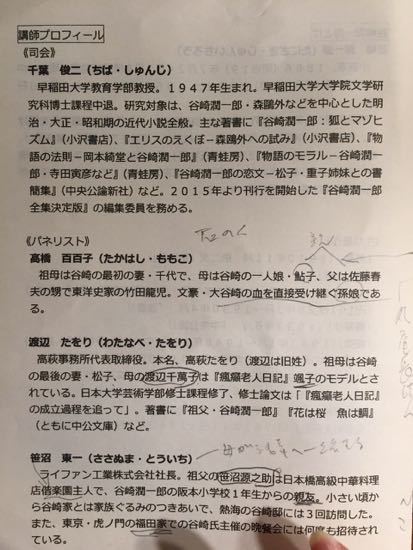 講師プロフィール
《司会》
千葉 俊二（ちば・しゅんじ）
早稲田大学教育学部教授。1947年生まれ。早稲田大学大学院文学研
究科博士課程中退。研究対象は、谷崎潤一郎・森鷗外などを中心とした明
治・大正・昭和期の近代小説全般。主な著書に『谷崎潤一郎：狐とマゾヒ
ズム』（小沢書店）、『エリスのえくぼ－森鷗外への試み』（小沢書店）、『物
語の法則－岡本綺堂と谷崎潤一郎』（青蛙房）、『物語のモラル－谷崎潤一
郎・寺田寅彦など』（青蛙房）、『谷崎潤一郎の恋文－松子・重子姉妹との書
簡集』（中央公論新社）など。2015年より刊行を開始した『谷崎潤一郎
全集決定版』の編集委員を務める。
《パネリスト》
高橋 百百子（たかはし・ももこ）
祖母は谷崎の最初の妻・千代で、母は谷崎の一人娘・鮎子、父は佐藤春
夫の甥で東洋史家の竹田龍児。文豪・大谷崎の血を直接受け継ぐ孫娘であ
る。
渡辺 たをり（わたなべ・たをり）
高萩事務所代表取締役。本名、高萩たをり（渡辺は旧姓）。祖母は谷崎
の最後の妻・松子、母の渡辺千萬子は『瘋癲老人日記』颯子のモデルとさ
れている。日本大学芸術学部修士課程修了、修士論文は「『瘋癲老人日記』
の成立過程を追って」。著書に『祖父・谷崎潤一郎』『花は桜 魚は鯛』
（ともに中公文庫）など。
笹沼 東一（ささぬま・とういち）
ライファン工業株式会社社長。祖父の笹沼源之助は日本橋高級中華料理
店偕楽園主人で、谷崎潤一郎の阪本小学校1年生からの親友。小さい頃か
ら谷崎とは家族ぐるみのつきあいで、熱海の谷崎邸には3回訪問した。
また、東京・虎ノ門の福田家での谷崎氏主催の晩餐会には何度も招待され
ている。